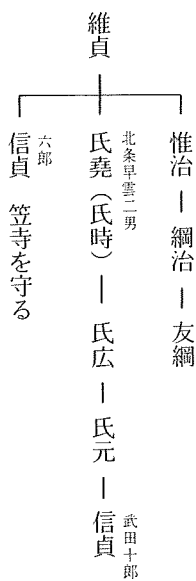 維貞
惟治 ― 綱治 ― 友綱
北条早雲二男
氏堯(氏時) ― 氏広 ― 氏元 ― 信貞
武田十郎
六郎
信貞 笠寺を守る